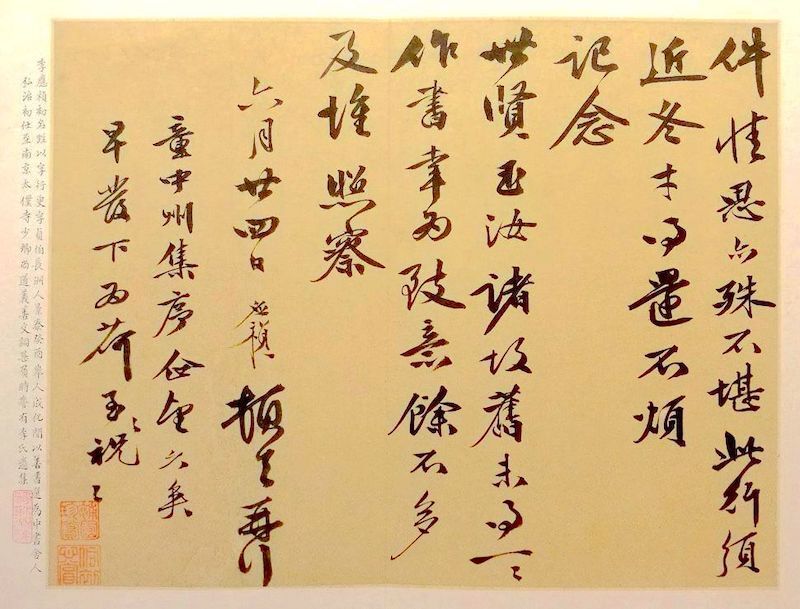 件情思亦殊不堪此行須
近冬才得還不煩
記念
世賢玉汝諸故舊未得一一
作書幸為致意餘不多
及惟照察
六月廿四日應禎頓首再行
童中州集序
早發下為荷至祝
李應禎初名甡以字行更字貞伯長洲人景泰癸酉舉人成化間以善書選為中書舍人
弘治初仕至南京太僕寺少卿尚道義善文詞甚負時譽有李氏遺集